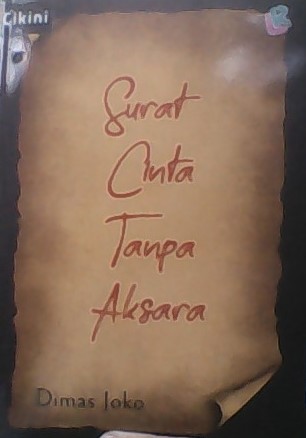 Cikini
Surat
Cinta
Tanpa
Aksara
Dimas Joko